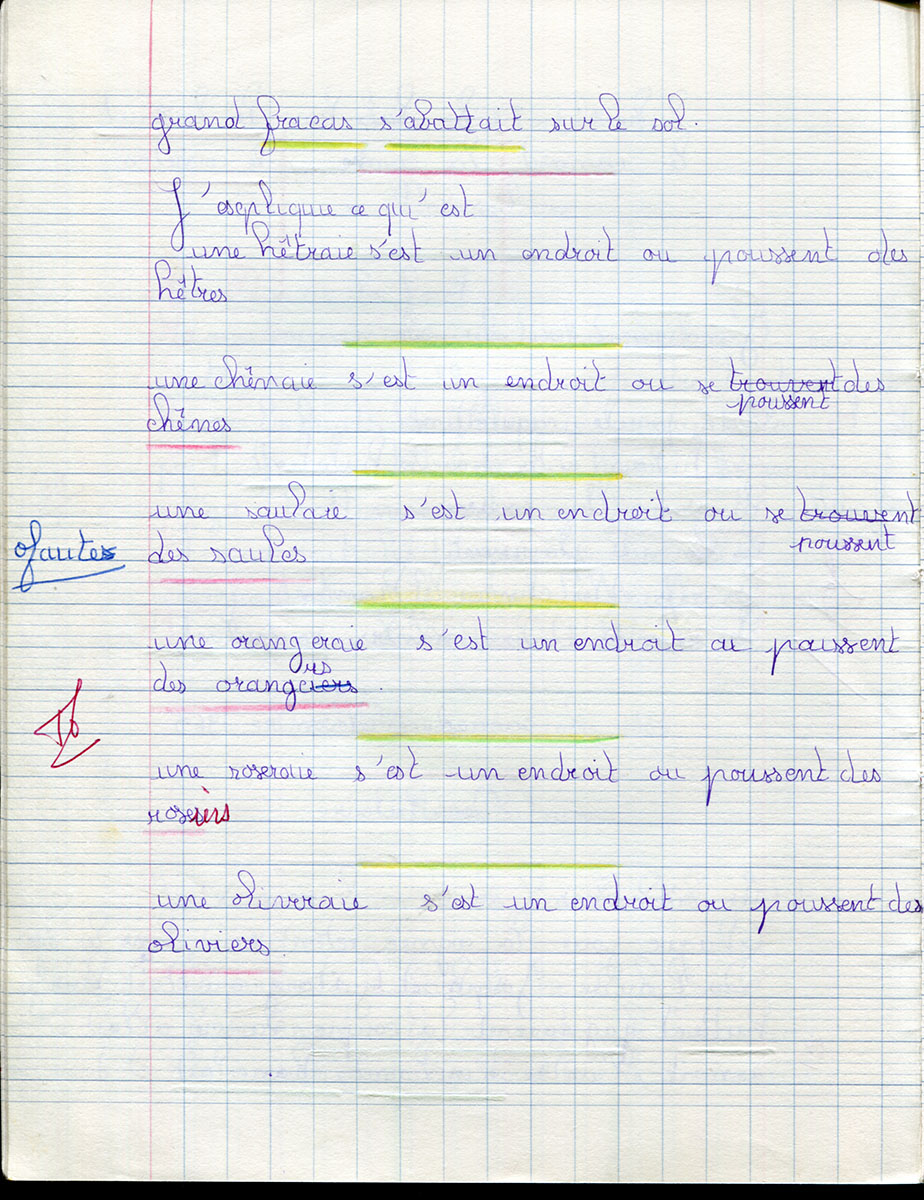 grand fracas s'abattait sur le sol.
J'esplique ce qu'est
une hêtraie s'est un endroit ou poussent des
hêtres
une chênaie s'est un endroit ou se trouvent des
poussent
chênes
une saulaie s'est un endroit ou se trouvent
poussent
0 fautes des saules
une orangeraie s'est un endroit ou poussent
ers
des orangciers.
Tb
une roseraie s'est un endroit ou poussent des
rosiers
une olivraie s'est un endroit ou poussent des
oliviers